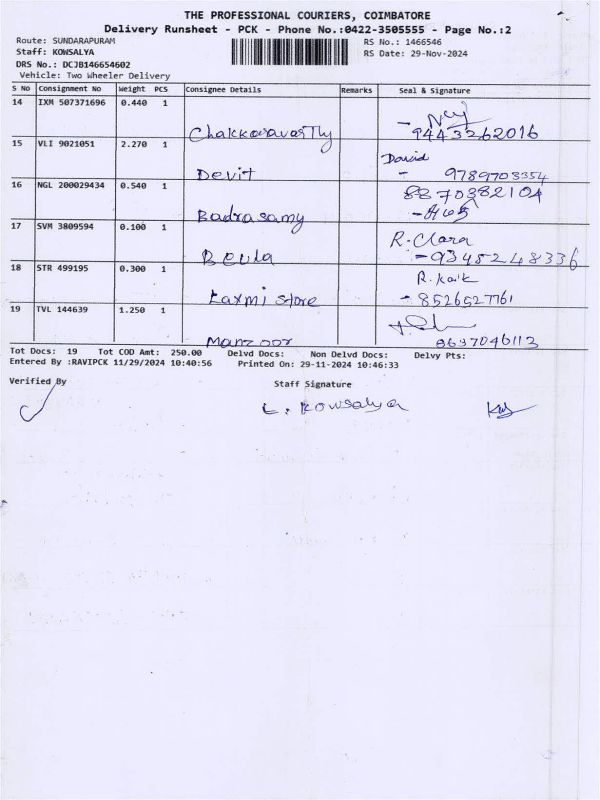 THE PROFESSIONAL COURIERS, COIMBATORE
Delivery Runsheet - PCK - Phone No.:0422-3505555 - Page No.:2
Route: SUNDARAPURAM RS No.: 1466546
Staff: KOWSALYA RS Date: 29-Nov-2024
DRS No.: DCJB146654602
Vehicle: Two Wheeler Delivery
S No Consignment No Weight PCS Consignee Details Remarks Seal & Signature
14 IXM 507371696 0.440 1
Chakkaravarthy 9443262016
15 VLI 9021051 2.270 1 David
Devit - 9789703354
16 NGL 200029434 0.540 1 8870382104
Badrasamy
17 SVM 3809594 0.100 1 R. Clara
Beula - 9345248336
18 STR 499195 0.300 1 R.
Laxmi store - 8526527761
19 TVL 144639 1.250 1
Manzoor 8637046113
Tot Docs: 19 Tot COD Amt: 250.00 Delvd Docs: Non Delvd Docs: Delvy Pts:
Entered By :RAVIPCK 11/29/2024 10:40:56 Printed On: 29-11-2024 10:46:33
Verified By Staff Signature
L. Kowsalya